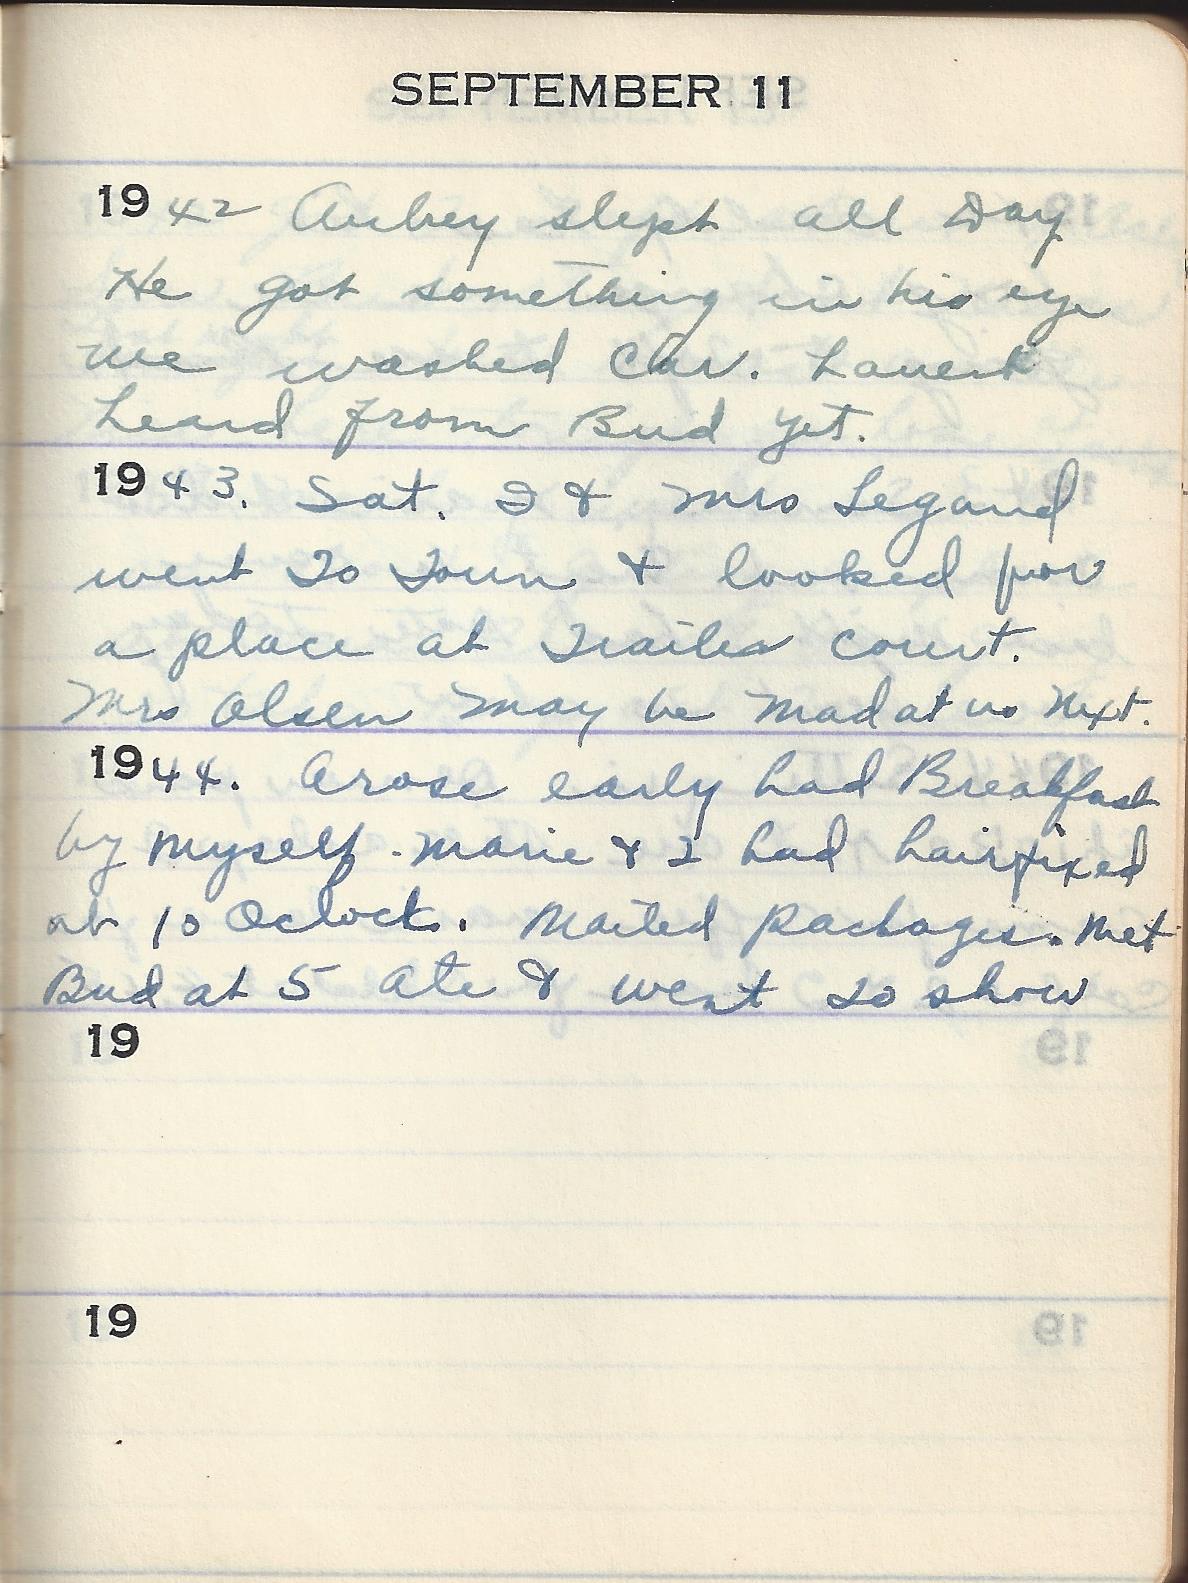 SEPTEMBER 11
1942 Aubrey slept all Day
He got something in his eye
We washed Car. havent
heard from Bud yet.
1943. Sat. I & Mrs Legand
went To Town & looked for
a place at Trailer court.
Mrs Olsen may be mad at us Next.
1944. Arose early had Breakfast
by myself. Marie & I had hair fixed
at 10 Oclock. Mailed packages. Met
Bud at 5 Ate & went to show
19
19